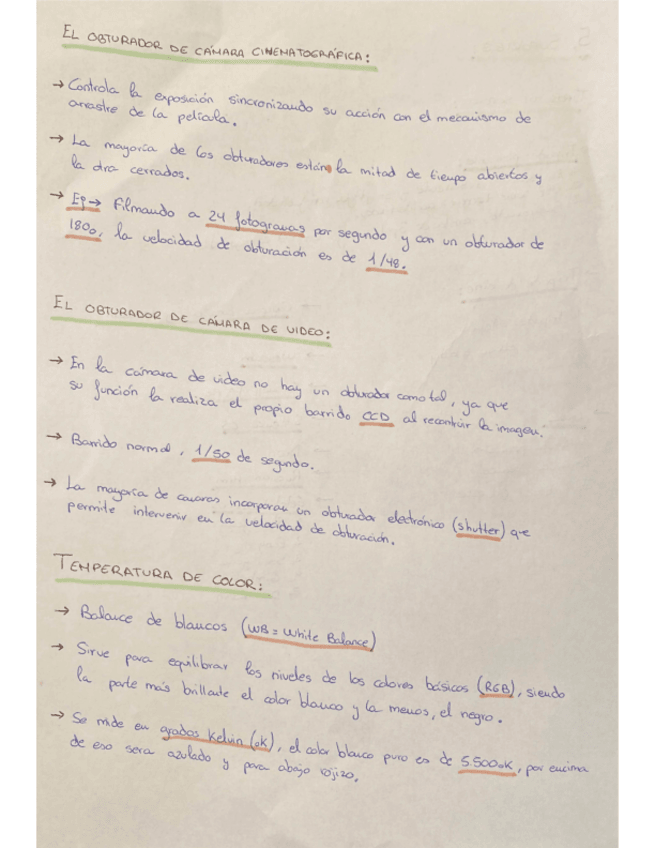 EL OBTURADOR DE CÁMARA CINEMATOGRÁFICA:
→ Controla la exposición sincronizando su acción con el mecanismo de
arrastre de la película.
→ La mayoría de los obturadores están la mitad de tiempo abiertos y
la otra cerrados.
→ Ej→ Filmando a 24 fotogramas por segundo y con un obturador de
180o, la velocidad de obturación es de 1/48.
EL OBTURADOR DE CÁMARA DE VIDEO:
→ En la cámara de video no hay un obturador como tal, ya que
su función la realiza el propio barrido CCD al recontruir la imagen.
→ Barrido normal, 1/50 de segundo.
→ La mayoría de camaras incorporan un obturador electrónico (shutter) que
permite intervenir en la velocidad de obturación.
TEMPERATURA DE COLOR:
→ Balance de blancos (WB = White Balance)
→ Sirve para equilibrar los niveles de los colores básicos (RGB), siendo
la parte más brillante el color blanco y la menos, el negro.
→ Se mide en grados Kelvin (ok), el color blanco puro es de 5.500ok, por encima
de eso sera azulado y para abajo rojizo.